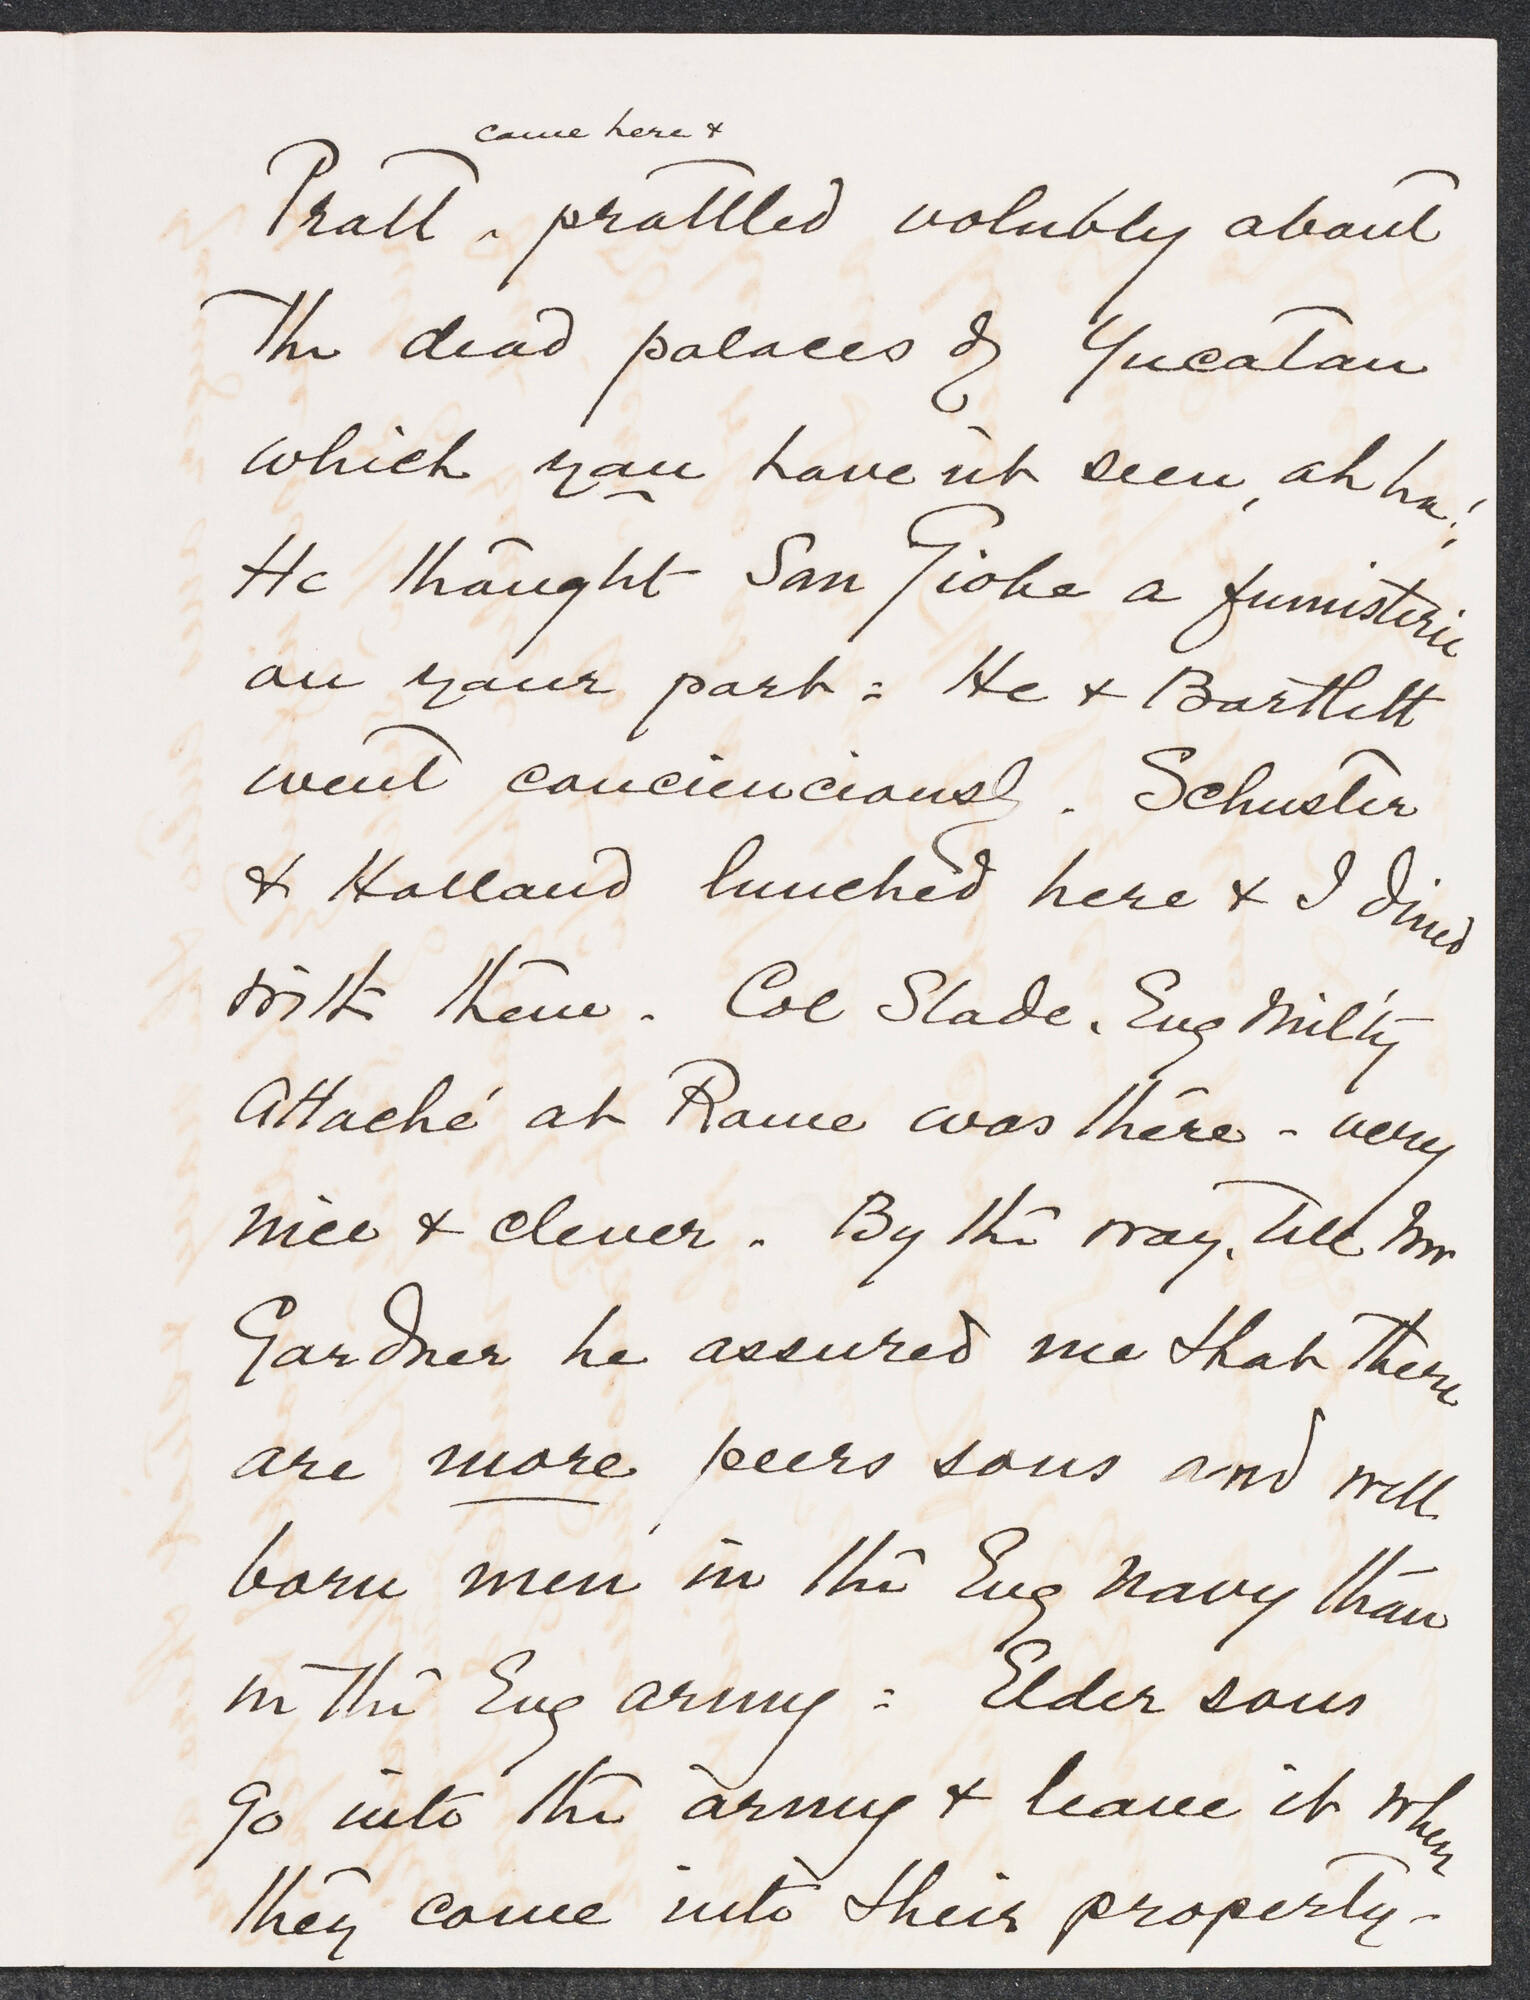 came here &
Pratt ‸ prattled volubly about
the dead palaces of Yucatan
which you have n't seen, ah ha!
He thought San Giobe a fumisterie
on your part = He & Bartlett
went concienciously. Schuster
& Holland lunched here & I dined
with them. Col Slade. Eng Mil'ty
Attaché at Rome was there - very
nice & clever. By the way, tell Mr
Gardner he assured me that there
are more peers sons and well
born men in the Eng navy than
in the Eng army = Elder sons
go into the army & leave it when
they come into their property -